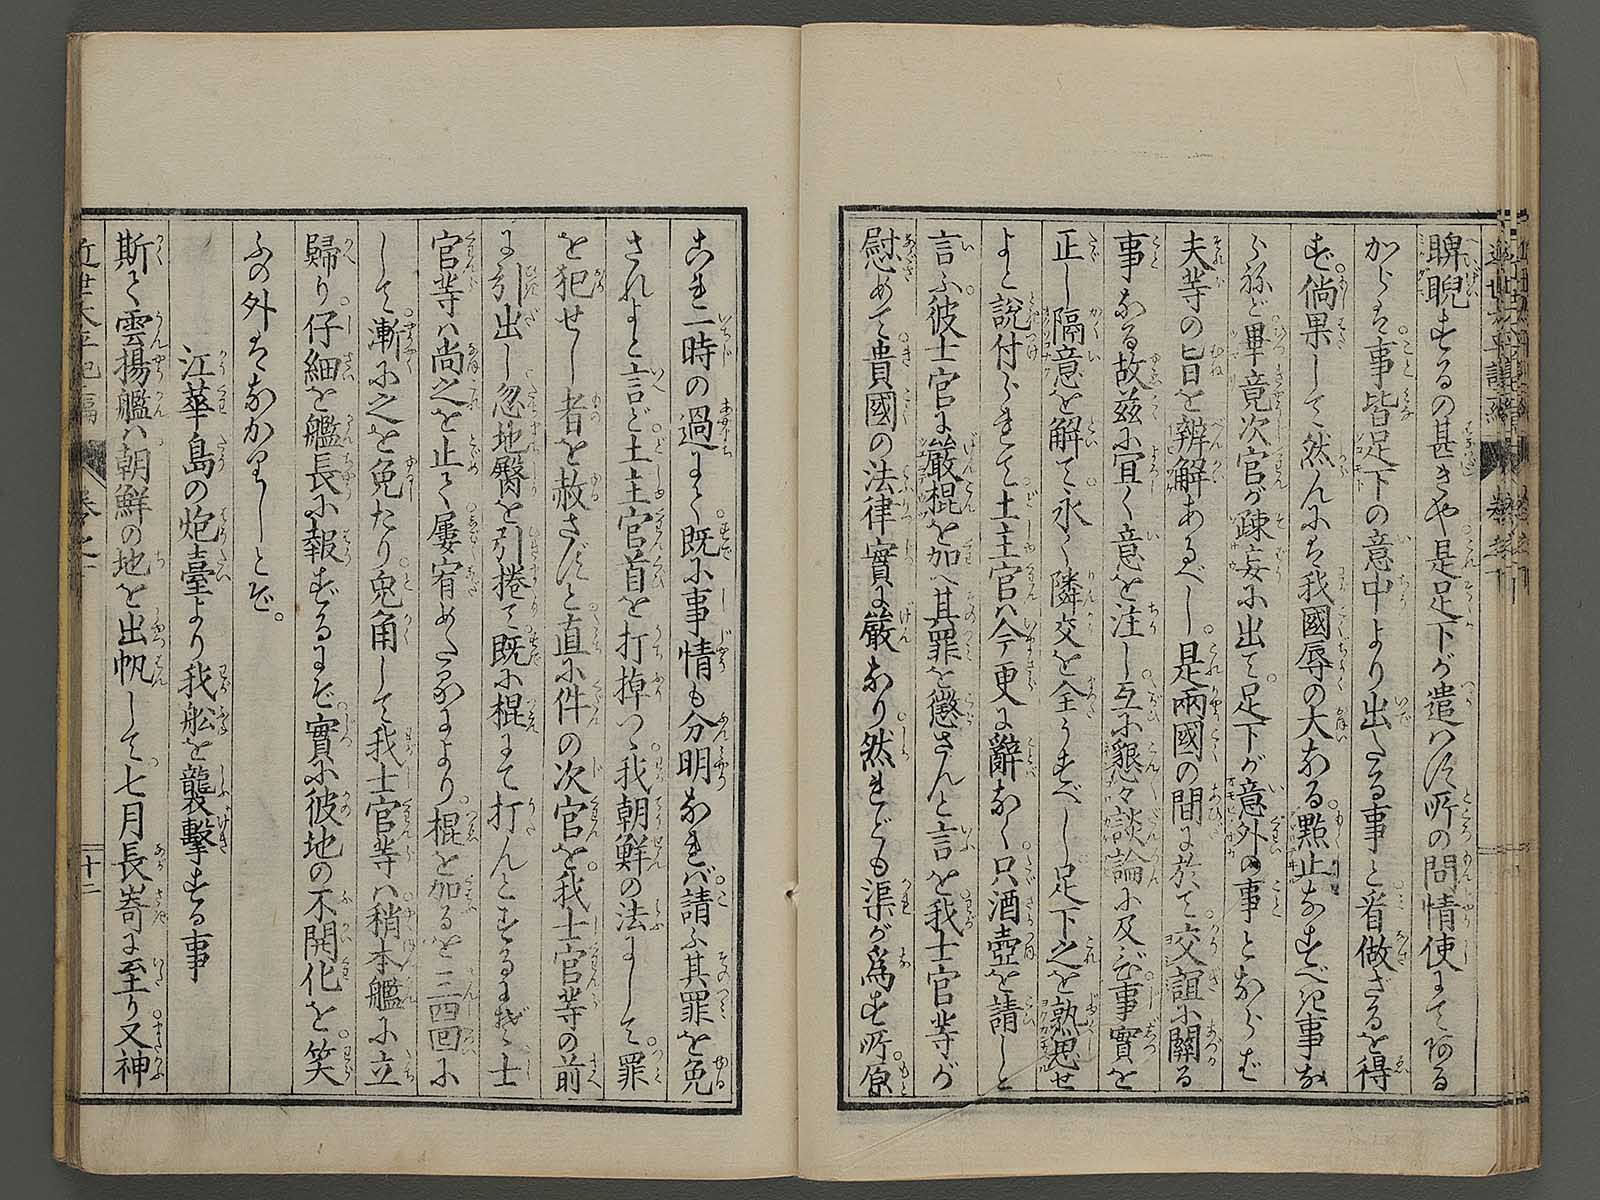 睥睨するの甚きや是足下が遣はす所の問情使にてある
からは事皆足下の意中より出たる事と看做ざるを得
ず倘果して然んには我國辱の大なる點止なすべき事な
らねど畢竟次官が疎妄に出て足下が意外の事とならむ
夫等の旨を辨解あるべし是兩國の間に於て交誼に關る
事なる故茲に宜く意を注し互に懇々談論に及び事實を
正し隔意を解て永く隣交を全うすべし足下之を熟思せ
よと説付られて土主官ハ今更に辭なく只酒壺を請しと
言ふ彼士官に嚴棍を加へ其罪を懲さんと言を我士官等が
慰めて貴國の法律實に嚴なり然れども渠が爲す所原
これ一時の過にて既に事情も分明なれバ請ふ其罪を免
されよと言ど土主官首を打掉つゝ我朝鮮の法にして罪
を犯せし者を赦さずと直に件の次官を我士官等の前
に引出し忽地臀を引捲て既に棍にて打んとするにぞ士
官等ハ尚之を止て屢宥めたるにより棍を加るを三四回に
して漸に之を免たり兎角して我士官等ハ稍本艦に立
歸り仔細を艦長に報ずるにぞ實に彼地の不開化を笑
ふの外はなかりしとぞ。
江華島の炮臺より我舩を襲撃する事
斯て雲揚艦ハ朝鮮の地を出帆して七月長嵜に至り又神
近世太平記 卷之 十二